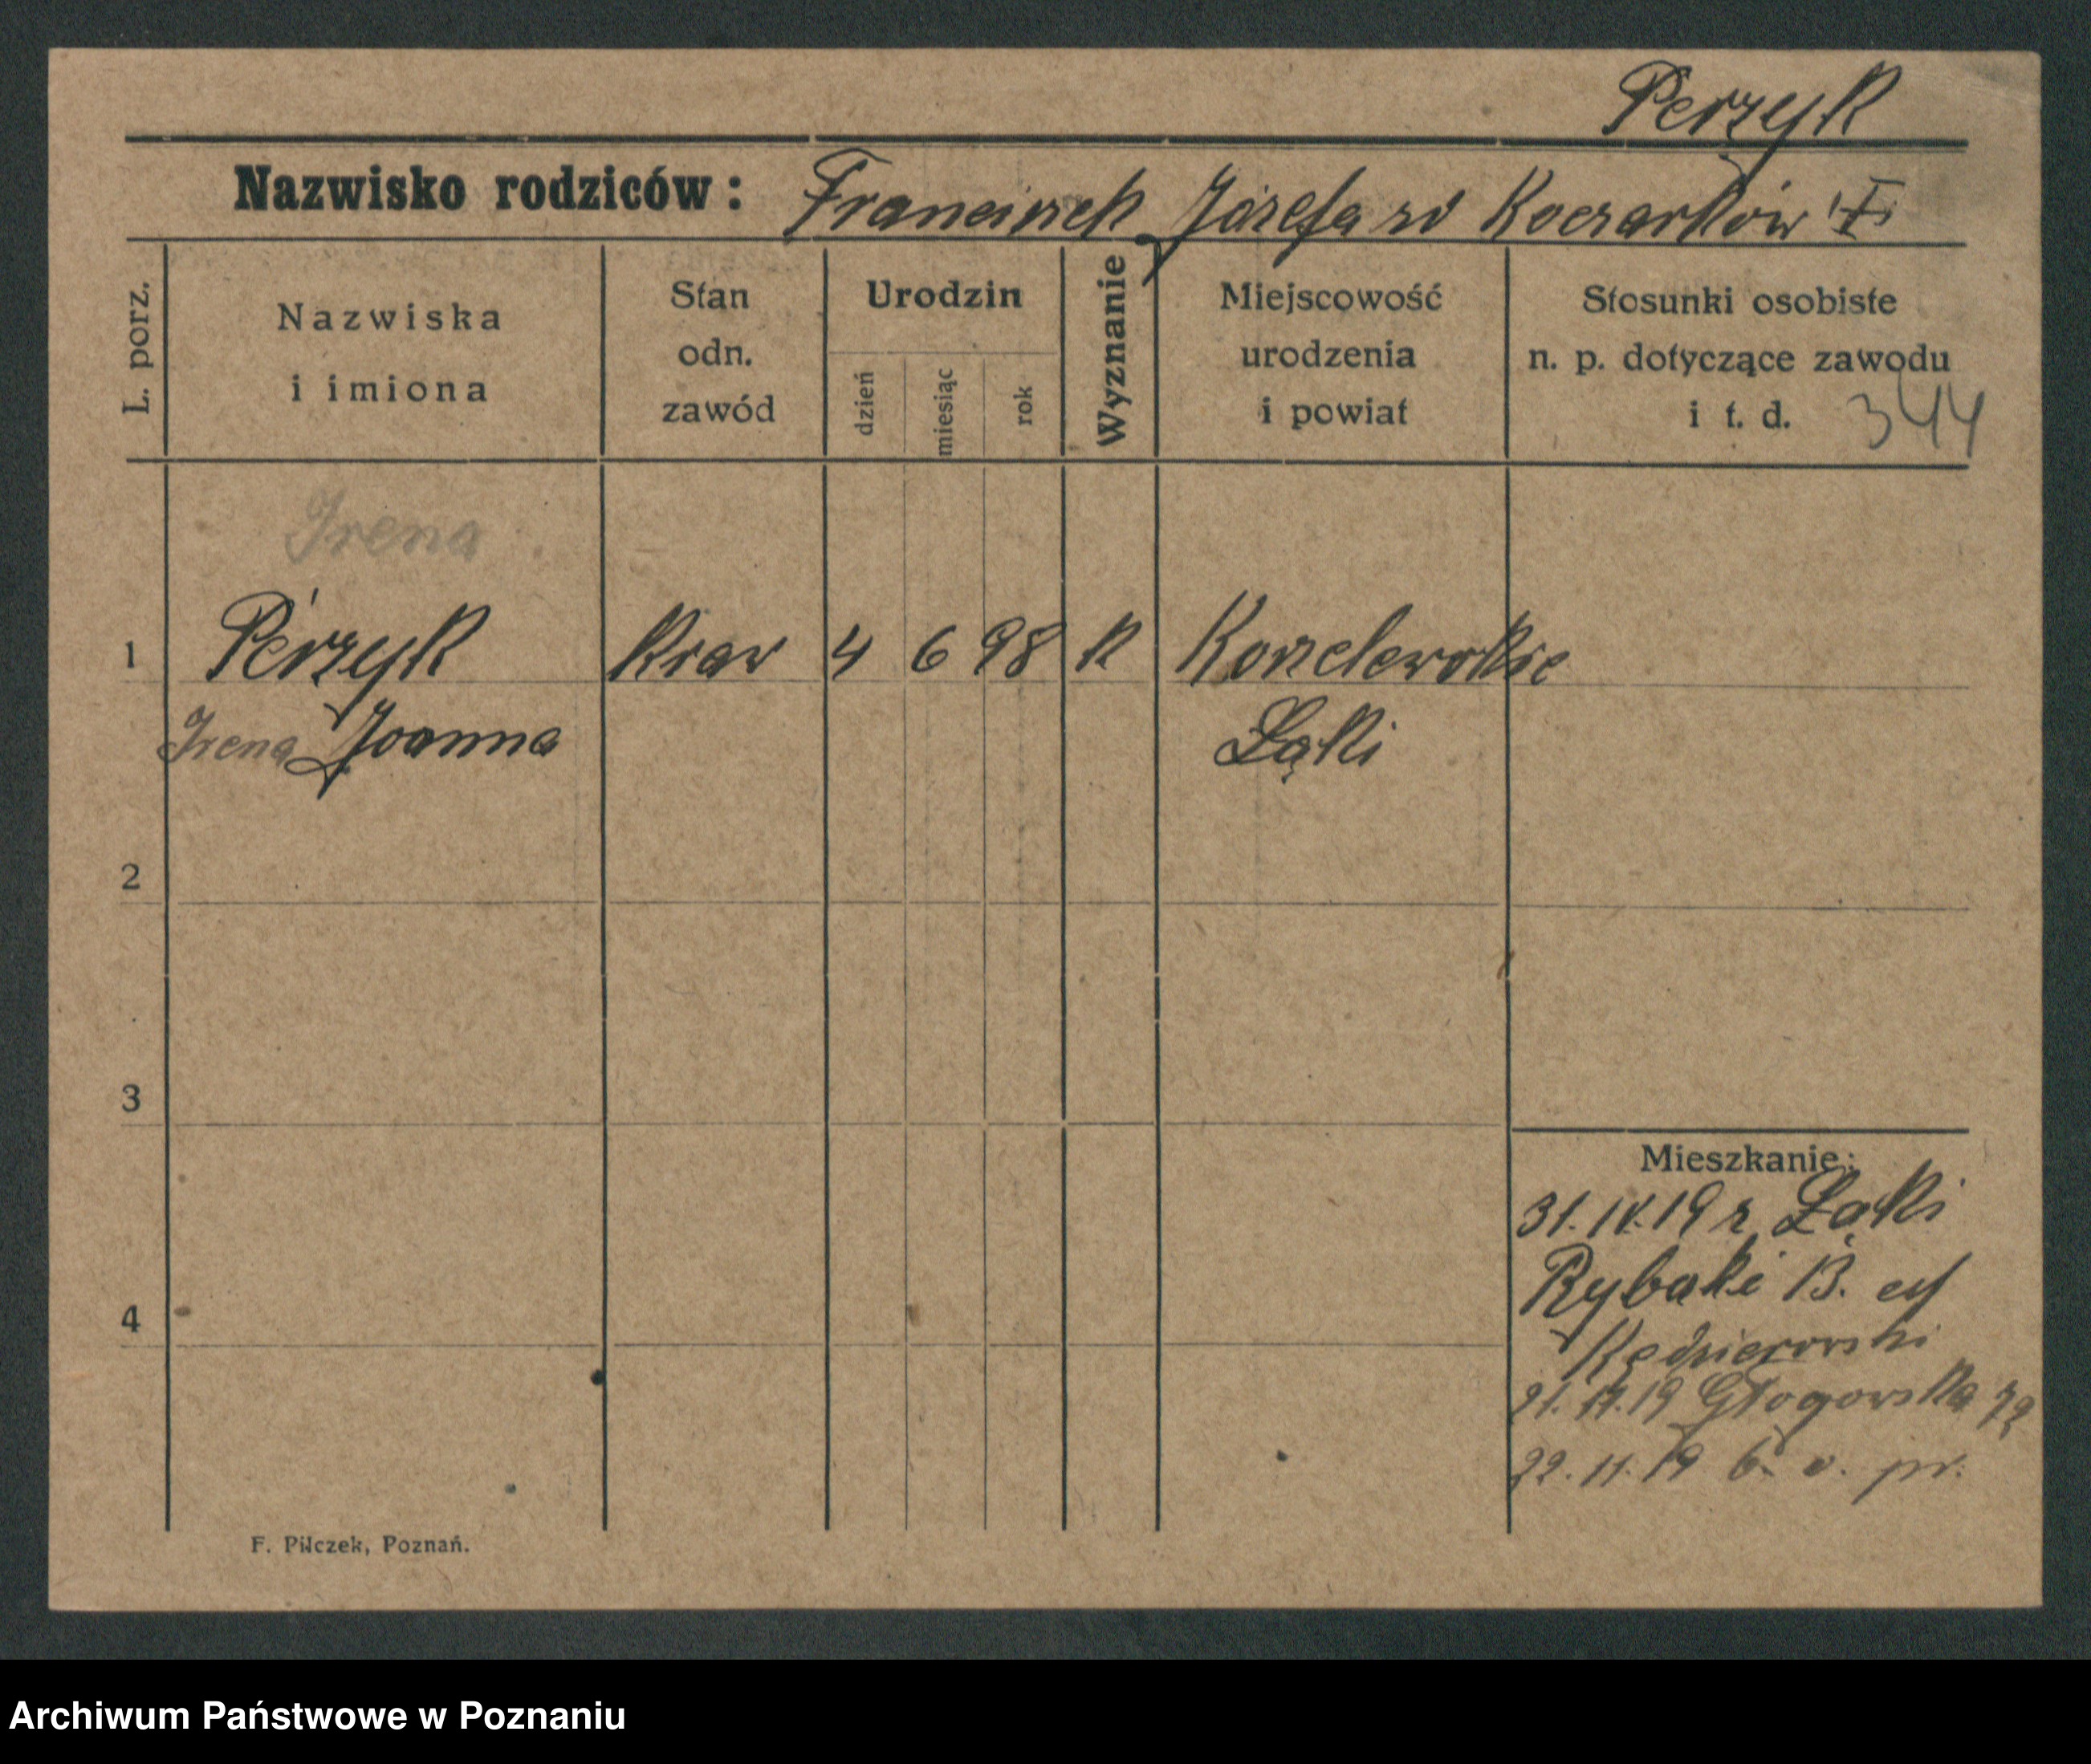 Perzyk
Nazwisko rodziców: Franciszek Józefa zd Koczarków
L. porz.
Nazwiska
i imiona
Stan
odn.
zawód
Urodzin
dzień
miesiąc
rok
Wyznanie
Miejscowość
urodzenia
i powiat
Stosunki osobiste
n. p. dotyczące zawodu
i t. d. 344
Irena
1 Perzyk kraw 4 6 98 k Konzelewskie
Irena Joanna Łąki
2
3
4
Mieszkanie:
31. IV. 19 r Łąki
Rybaki 13.
21. 11. 19 Głogowska
22. 11. 19 v. pr.
F. Pilczek, Poznań.
Archiwum Państwowe w Poznaniu